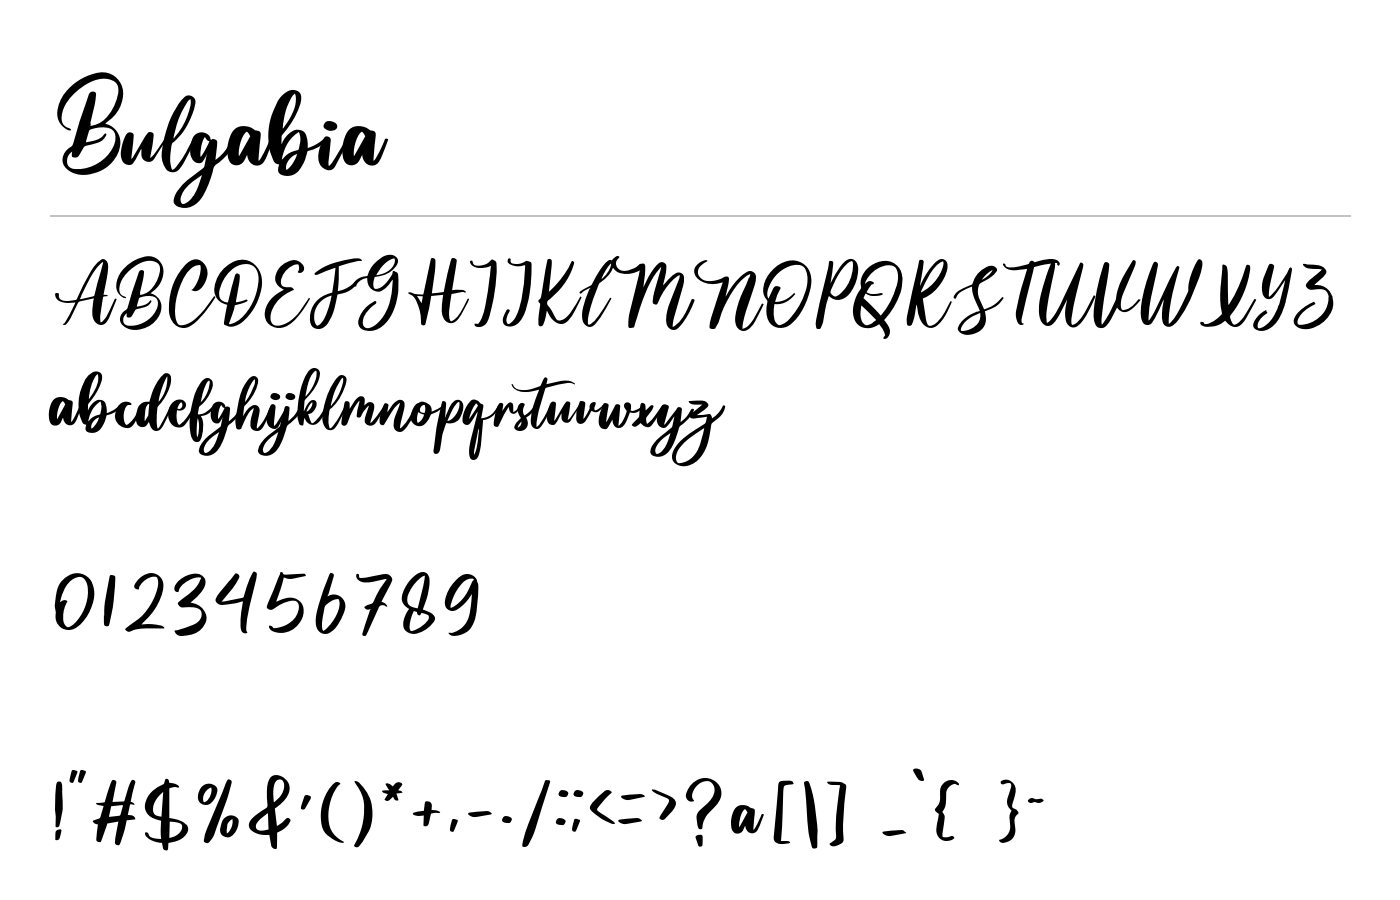 Bulgabia
ABCDEFGHIJKLMNOPQRSTUVWXYZ
abcdefghijklmnopqrstuvwxyz
0123456789
!"#$%&'()*+,-./:;<=>?a[\] _`{ }~